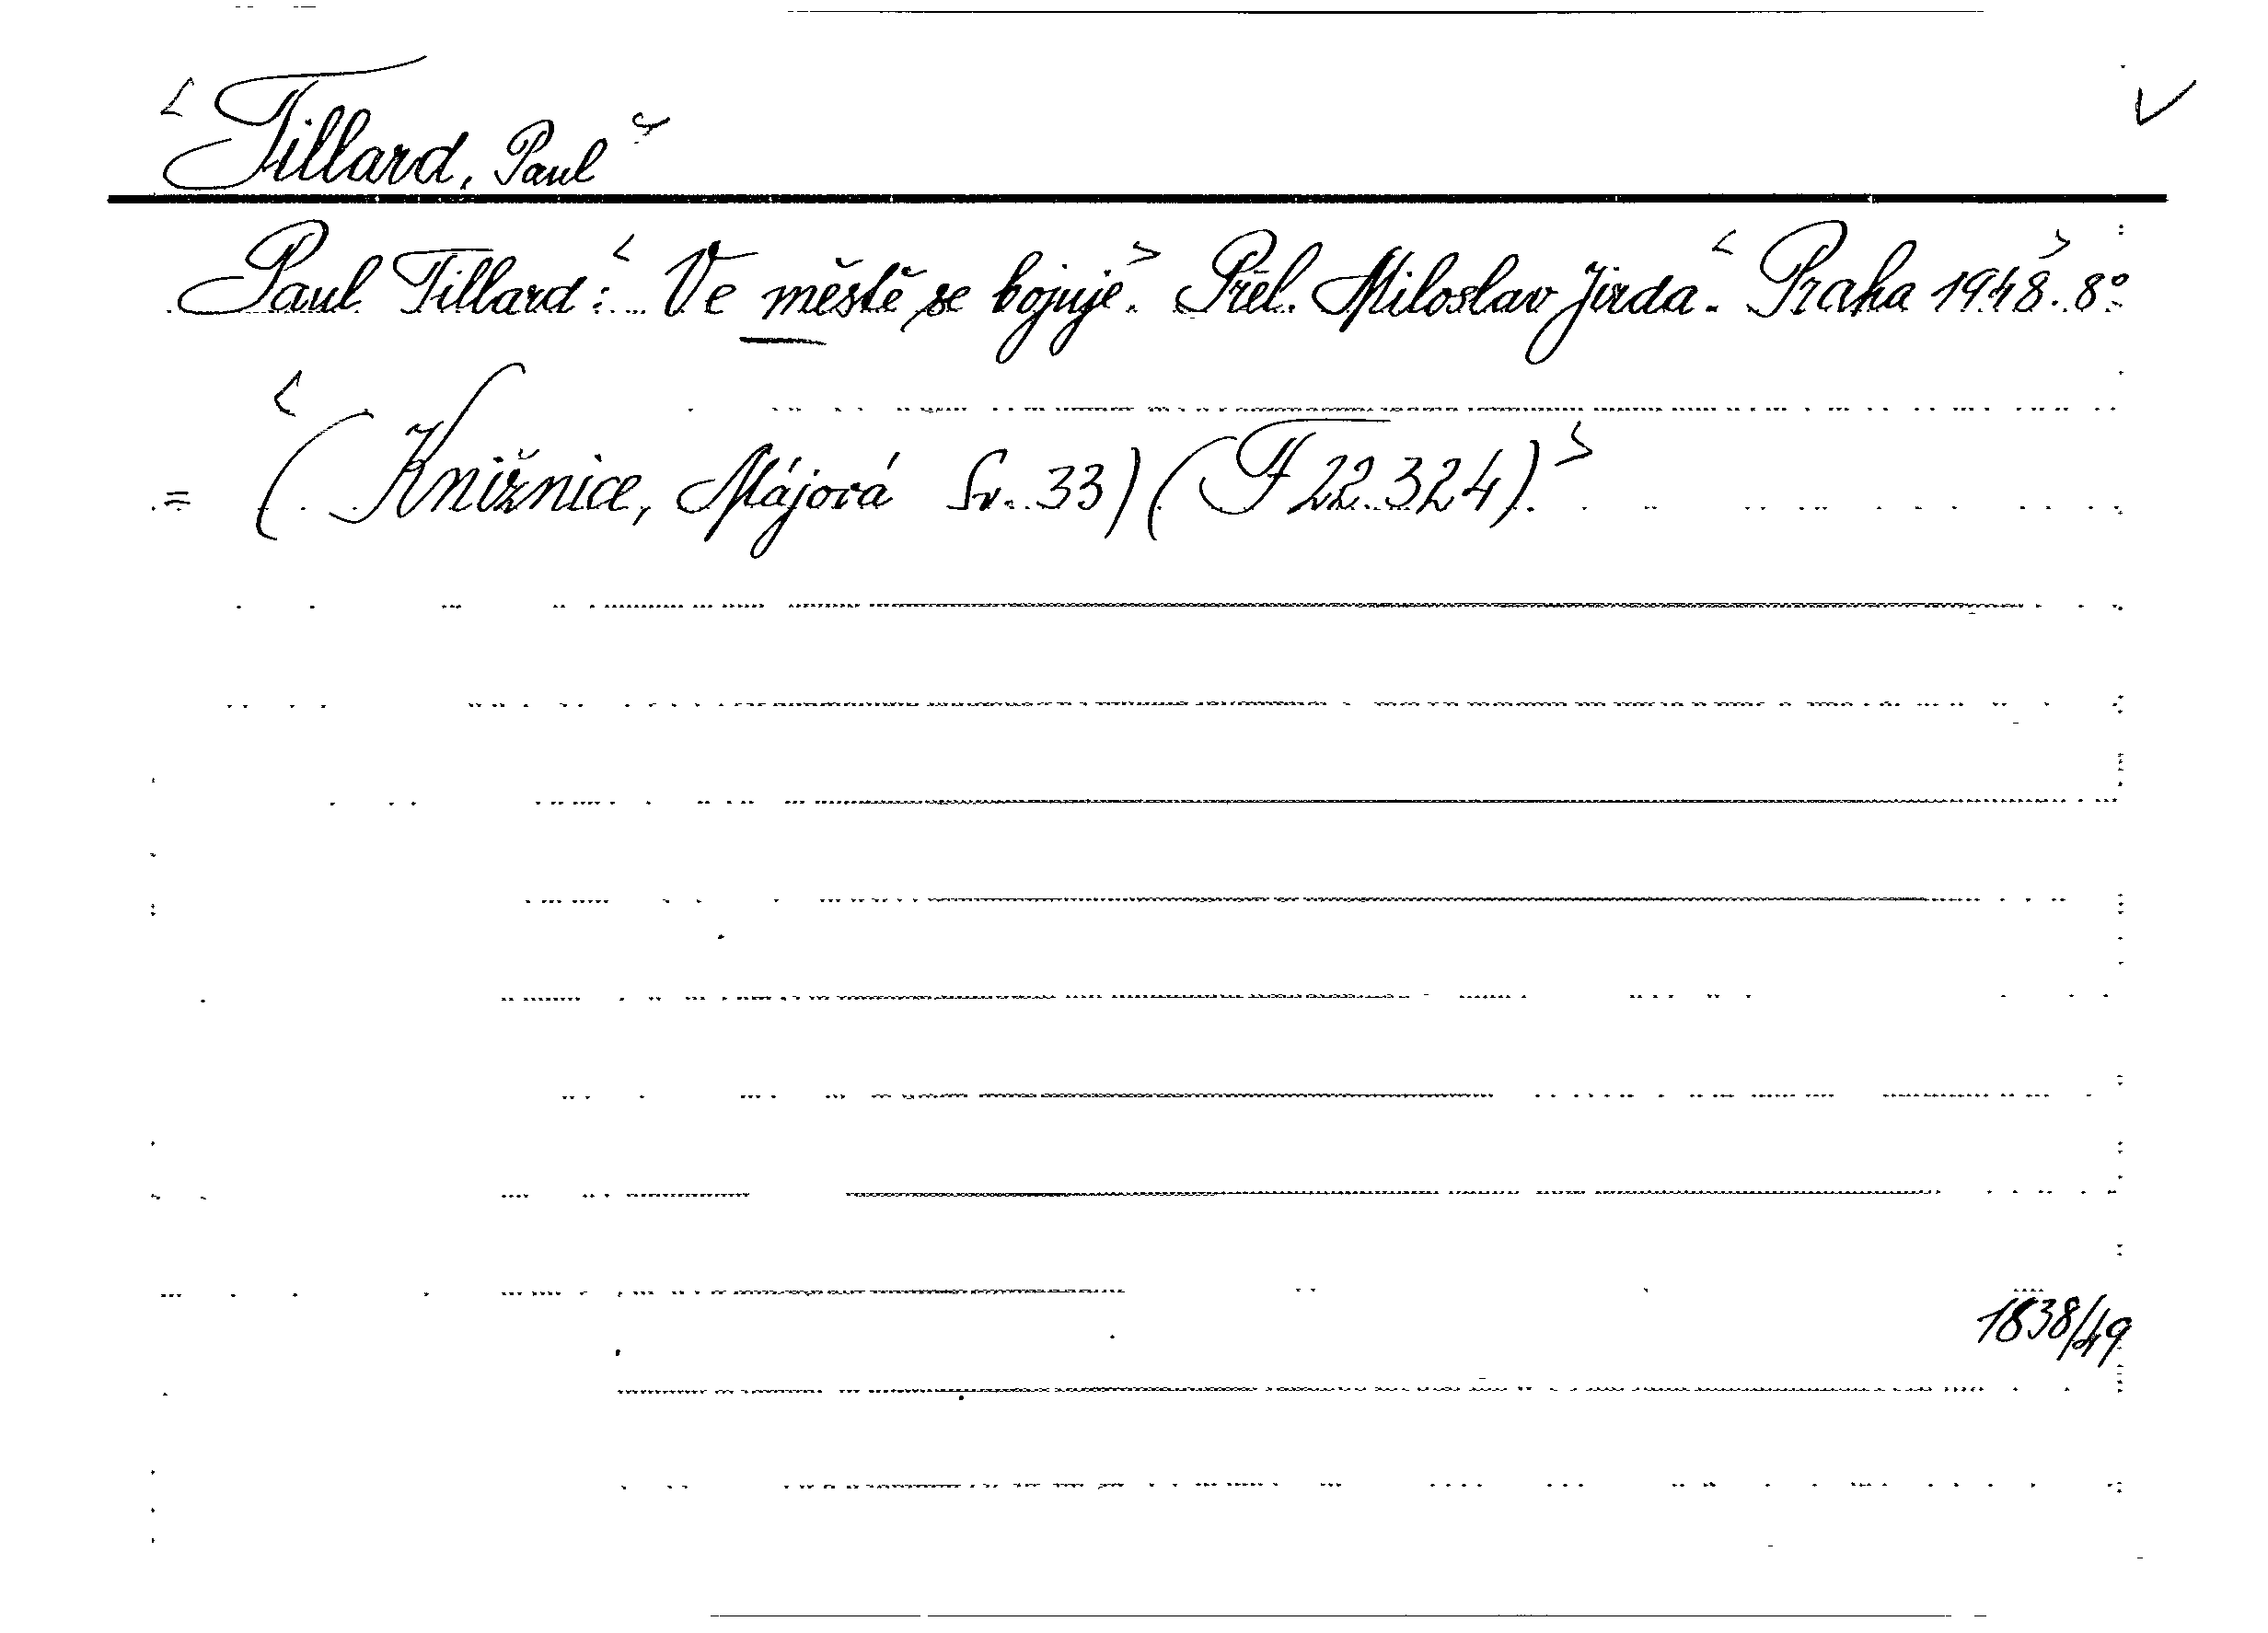 < Tillard, Paul > V
Paul Tillard: < Ve městě se bojuje. > Přel. Miloslav Jirda. < Praha 1948. > 8°.
= < (Knižnice, Májová Sv. 33) (F 22.324). >
1838/49